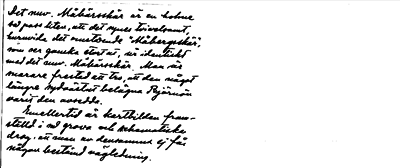 Det nuv. Måbärsskär är en holme
så pass liten, att det synes tvivelsamt,
huruvida det omstående "Måbergsskär",
som var ganska stort at, är identiskt
med det nuv. Måbärsskär. Man är
snarare frestad att tro, att den något
längre sydväst belägna Björnön
varit den avsedda.
Emellertid är kartbilden fram-
ställd i så grova och schematiska
drag, att man av densamma ej får
någon bestämd vägledning.